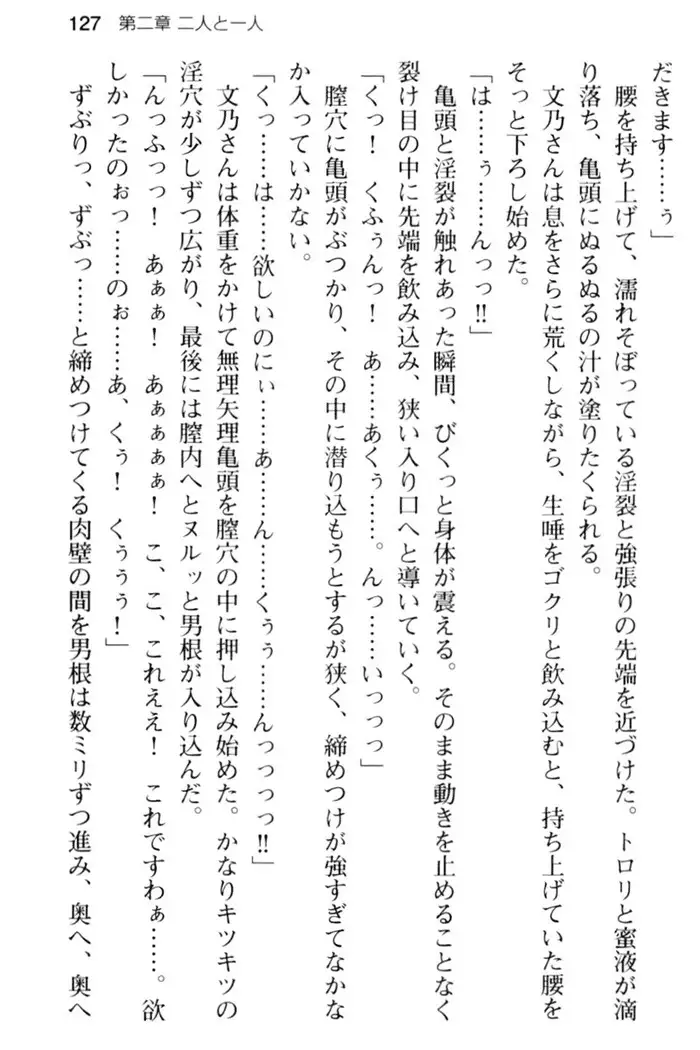 127 第二章 二人と一人
だきます……ぅ」
腰を持ち上げて、濡れそぼっている淫裂と強張りの先端を近づけた。トロリと蜜液が滴
り落ち、亀頭にぬるぬるの汁が塗りたくられる。
文乃さんは息をさらに荒くしながら、生唾をゴクリと飲み込むと、持ち上げていた腰を
そっと下ろし始めた。
「は……ぅ……んっっ!!」
亀頭と淫裂が触れあった瞬間、びくっと身体が震える。そのまま動きを止めることなく
裂け目の中に先端を飲み込み、狭い入り口へと導いていく。
「くっ！　くふぅんっ！　あ……あくぅ……。んっ……いっっっ」
膣穴に亀頭がぶつかり、その中に潜り込もうとするが狭く、締めつけが強すぎてなかな
か入っていかない。
「くっ……は……欲しいのにぃ……あ……ん……くぅぅ……んっっっっ!!」
文乃さんは体重をかけて無理矢理亀頭を膣穴の中に押し込み始めた。かなりキツキツの
淫穴が少しずつ広がり、最後には膣内へとヌルッと男根が入り込んだ。
「んっふっっ！　あぁぁ！　あぁぁぁぁ！　こ、こ、これぇえ！　これですわぁ……。欲
しかったのぉっ……のぉ……あ、くぅ！　くぅぅぅ！」
ずぶりっ、ずぶっ……と締めつけてくる肉壁の間を男根は数ミリずつ進み、奥へ、奥へ